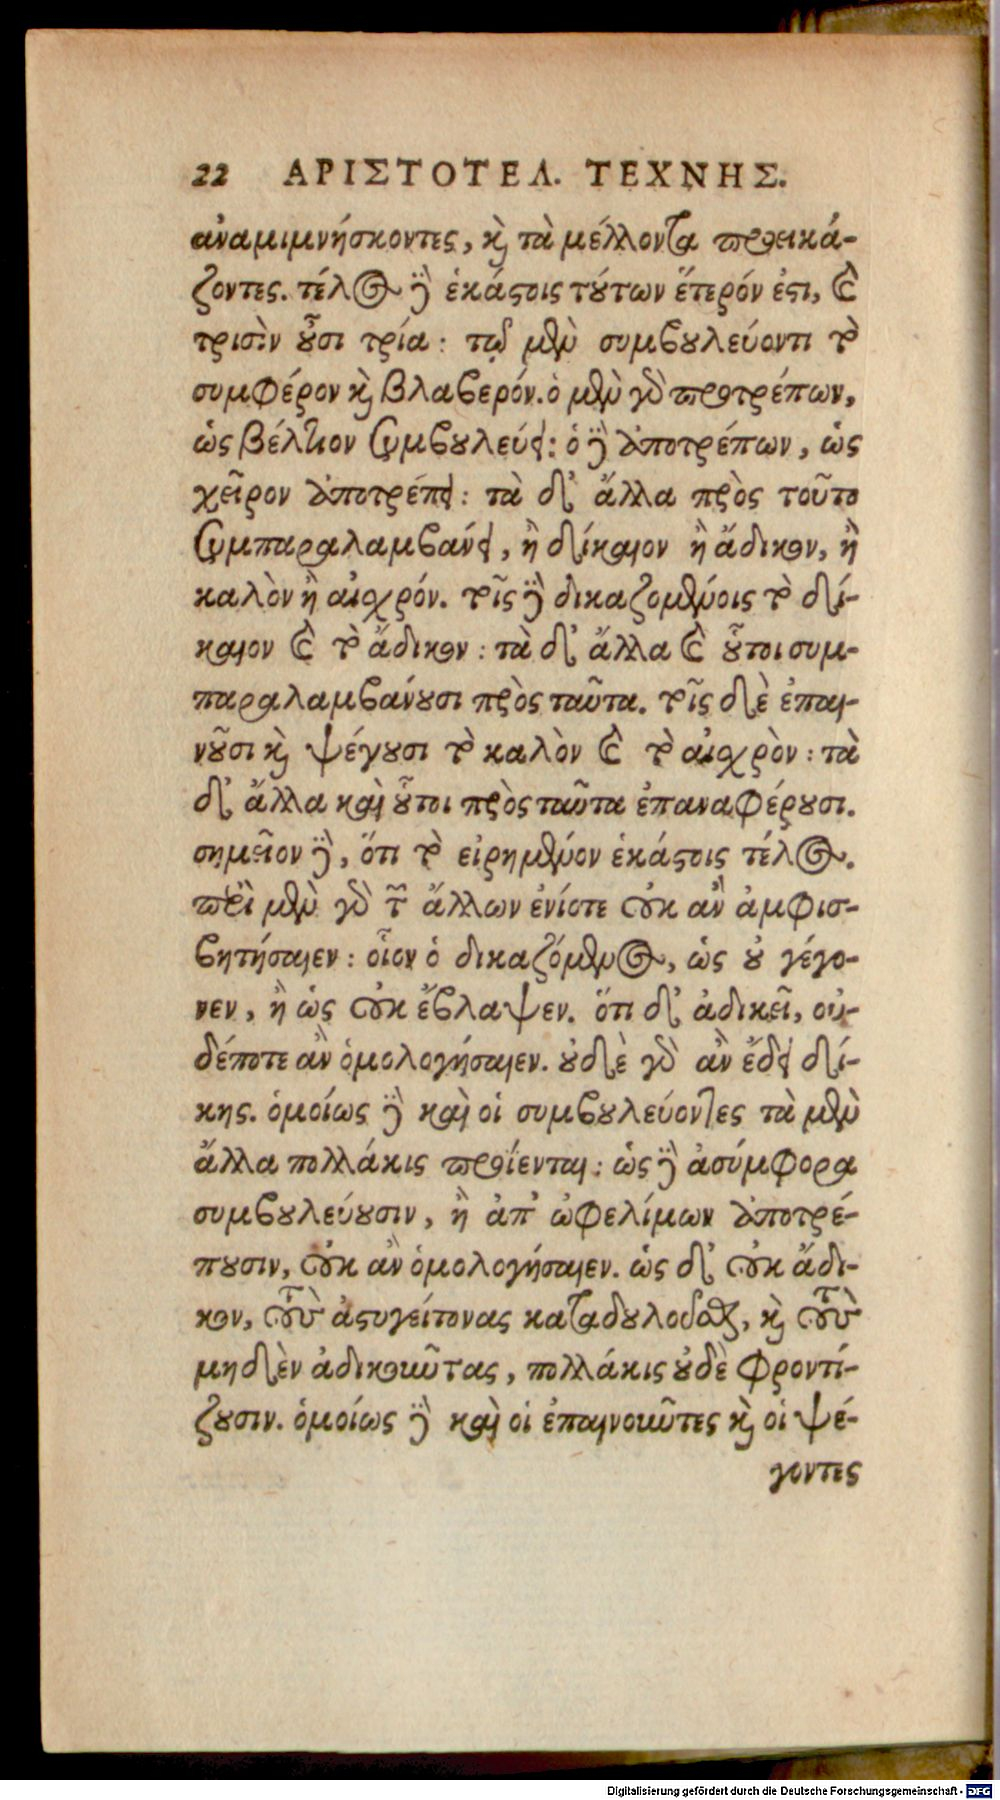 22 ΑΡΙΣΤΟΤΕΛ. ΤΕΧΝΗΣ.
ἀναμιμνήσκοντες, καὶ τὰ μέλλοντα προεικά-
ζοντες. τέλος δὲ ἑκάστοις τούτων ἕτερόν ἐστι, καὶ
τρισὶν οὖσι τρία: τῷ μὲν συμβουλεύοντι τὸ
συμφέρον καὶ βλαβερόν. ὁ μὲν γὰρ προτρέπων,
ὡς βέλτιον συμβουλεύει: ὁ δὲ ἀποτρέπων, ὡς
χεῖρον ἀποτρέπει: τὰ δ' ἄλλα πρὸς τοῦτο
συμπαραλαμβάνει, ἢ δίκαιον ἢ ἄδικον, ἢ
καλὸν ἢ αἰσχρόν. τοῖς δὲ δικαζομένοις τὸ δί-
καιον καὶ τὸ ἄδικον: τὰ δ' ἄλλα καὶ οὗτοι συμ-
παραλαμβάνουσι πρὸς ταῦτα. τοῖς δὲ ἐπαι-
νοῦσι καὶ ψέγουσι τὸ καλὸν καὶ τὸ αἰσχρὸν: τὰ
δ' ἄλλα καὶ οὗτοι πρὸς ταῦτα ἐπαναφέρουσι.
σημεῖον δὲ, ὅτι τὸ εἰρημένον ἑκάστοις τέλος.
περὶ μὲν γὰρ τῶν ἄλλων ἐνίοτε οὐκ ἂν ἀμφισ-
βητήσαιεν: οἷον ὁ δικαζόμενος, ὡς οὐ γέγο-
νεν, ἢ ὡς οὐκ ἔβλαψεν. ὅτι δ' ἀδικεῖ, οὐ-
δέποτε ἂν ὁμολογήσαιεν. οὐδὲ γὰρ ἂν ἔδει δί-
κης. ὁμοίως δὲ καὶ οἱ συμβουλεύοντες τὰ μὲν
ἄλλα πολλάκις προΐενται: ὡς δὲ ἀσύμφορα
συμβουλεύουσιν, ἢ ἀπ' ὠφελίμων ἀποτρέ-
πουσιν, οὐκ ἂν ὁμολογήσαιεν. ὡς δ' οὐκ ἄδι-
κον, τοὺς ἀστυγείτονας καταδουλοῦσθαι, καὶ τοὺς
μηδὲν ἀδικοῦντας, πολλάκις οὐδὲ φροντί-
ζουσιν. ὁμοίως δὲ καὶ οἱ ἐπαινοῦντες καὶ οἱ ψέ-
γοντες
Digitalisierung gefördert durch die Deutsche Forschungsgemeinschaft - DFG